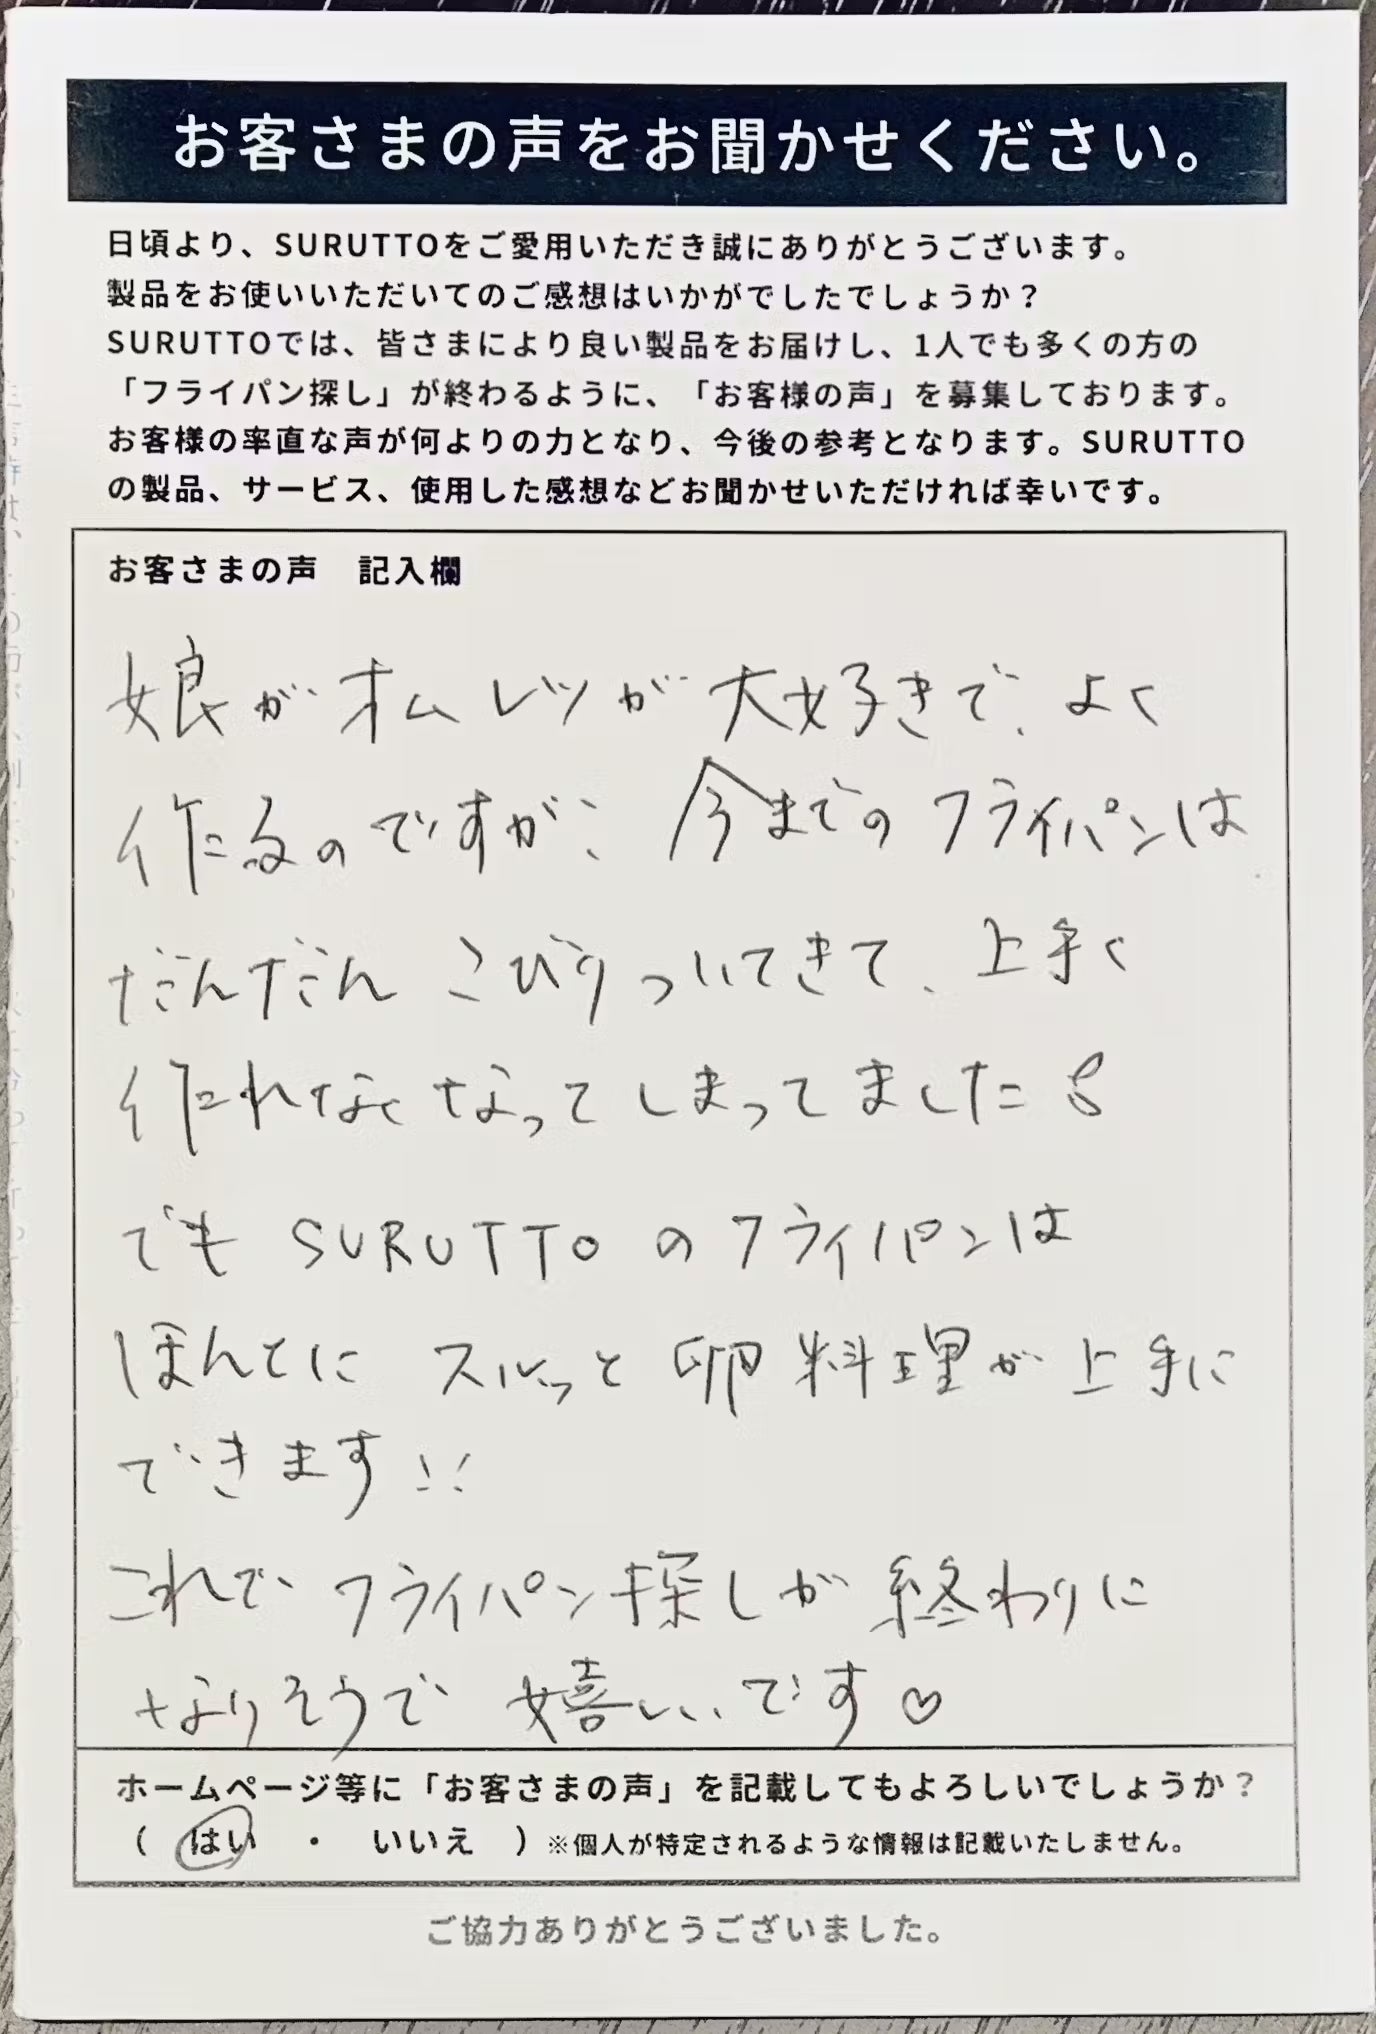 お客さまの声をお聞かせください。
日頃より、SURUTTOをご愛用いただき誠にありがとうございます。
製品をお使いいただいてのご感想はいかがでしたでしょうか？
SURUTTOでは、皆さまにより良い製品をお届けし、1人でも多くの方の
「フライパン探し」が終わるように、「お客様の声」を募集しております。
お客様の率直な声が何よりの力となり、今後の参考となります。SURUTTO
の製品、サービス、使用した感想などお聞かせいただければ幸いです。
お客さまの声　記入欄
娘がオムレツが大好きで、よく
作るのですが、今までのフライパンは
だんだんこびりついてきて、上手く
作れなくなってしまってました
でもSURUTTOのフライパンは
ほんとにスルッと卵料理が上手に
できます!!
これでフライパン探しが終わりに
なりそうで嬉しいです♡
ホームページ等に「お客さまの声」を記載してもよろしいでしょうか？
（　はい　・　いいえ　）※個人が特定されるような情報は記載いたしません。
ご協力ありがとうございました。